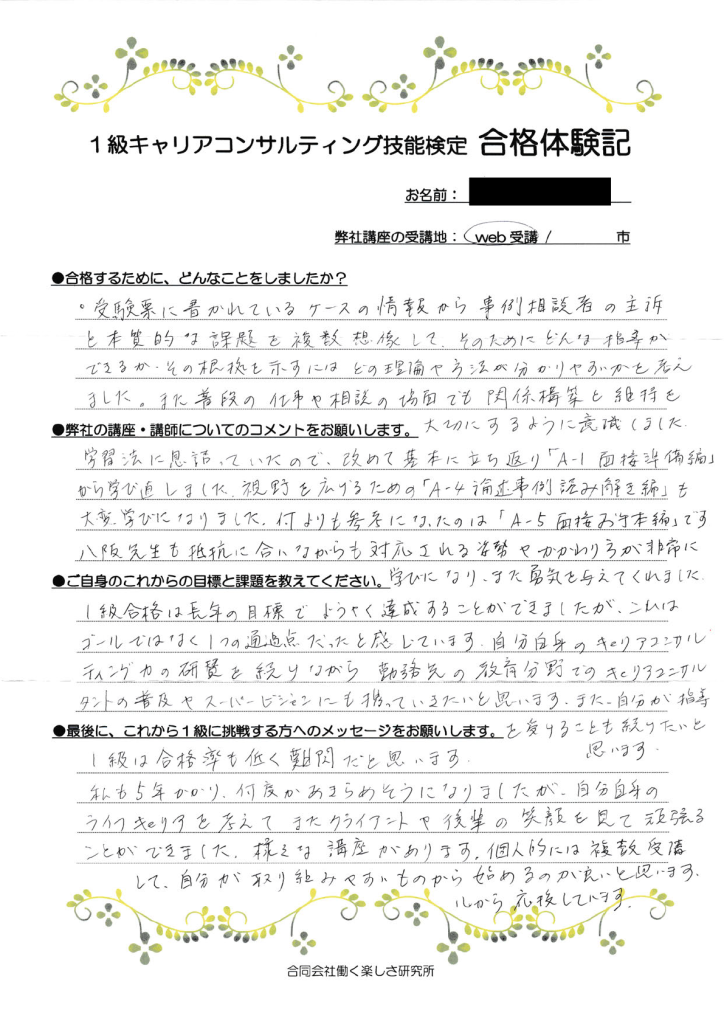 1級キャリアコンサルティング技能検定 合格体験記
お名前：
弊社講座の受講地： web 受講 / 市
●合格するために、どんなことをしましたか？
。受験票に書かれているケースの情報から事例相談者の主訴
と本質的な課題を複数想像して、そのためにどんな指導が
できるか、その根拠を示すにはどの理論や方法が分かりやすいかを考え
ました。また普段の仕事や相談の場面でも関係構築と維持を
大切にするように意識しました.
●弊社の講座・講師についてのコメントをお願いします。
学習法に息詰っていたので、改めて基本に立ち返り「A-1 面接準備編」
から学び直しました.視野を広げるための「A-4 論述事例読み解き編」も
大変、学びになりました.何よりも参考になったのは「A-5 面接お手本編」です
八阪先生も抵抗に合いながらも対応される姿勢やかかわり方が非常に
学びになり、また勇気を与えてくれました.
●ご自身のこれからの目標と課題を教えてください。
1級合格は長年の目標でようやく達成することができましたが、これは
ゴールではなく1つの通過点だったと感じています.自分自身のキャリアコンサル
ティング力の研鑽を続けながら 勤務先の教育分野でのキャリアコンサル
タントの普及やスーパービジョンにも携っていきたいと思います.また、自分が指導
を受けることも続けたいと
思います.
●最後に、これから1級に挑戦する方へのメッセージをお願いします。
1級は合格率も低く難関だと思います.
私も5年かかり、何度かあきらめそうになりましたが、自分自身の
ライフキャリアを考えて またクライアントや後輩の笑顔を見て頑張る
ことができました.様々な講座があります.個人的には複数受講
して、自分が取り組みやすいものから始めるのが良いと思います.
心から応援しています.
合同会社働く楽しさ研究所